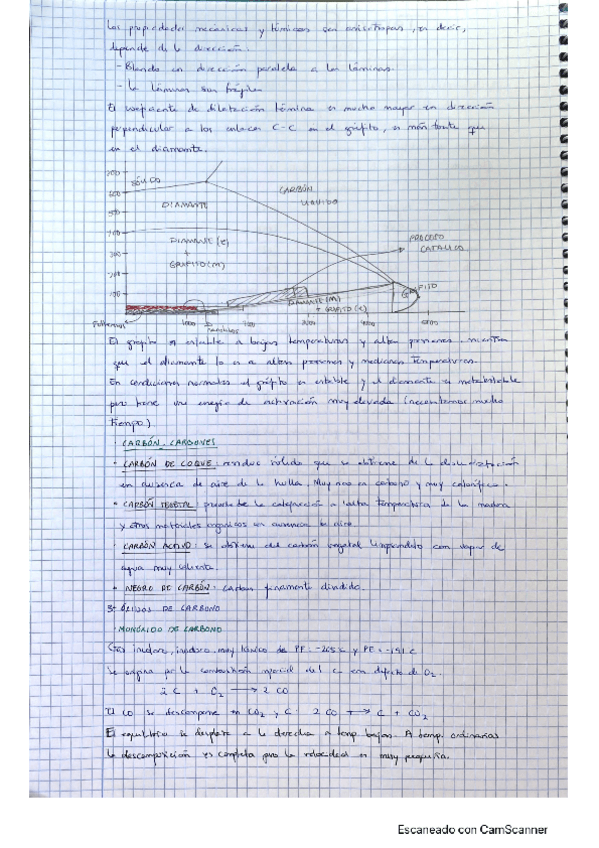 Las propiedades mecánicas y térmicas son anisótropas, es decir,
depende de la dirección.
- Blando en dirección paralela a las láminas.
- La láminas son frágiles
El coeficiente de dilatación térmica es mucho mayor en dirección
perpendicular a los enlaces C-C en el grafito, es más fuerte que
en el diamante.
SÓLIDO
CARBÓN
LÍQUIDO
DIAMANTE
DIAMANTE (e)
+
GRAFITO (m)
PROCESO
CATALICO
GRAFITO
DIAMANTE (m)
+ GRAFITO (e)
1000
3000
4000
5000
El grafito es estable a bajas temperaturas y altas presiones mientras
que el diamante lo es a altas presiones y medianas temperaturas.
En condiciones normales el grafito es estable y el diamante es metaestable
pero tiene una energía de activación muy elevada (necesitamos mucho
tiempo)
· CARBÓN. CARBONES
· CARBÓN DE COQUE: residuo sólido que se obtiene de la destilación
en ausencia de aire de la hulla. Muy rico en carbono y muy calorífico.
· CARBÓN VEGETAL: procede de la calefacción a alta temperatura de la madera
y otros materiales orgánicos en ausencia de aire.
· CARBÓN ACTIVO: se obtiene del carbón vegetal limpiándolo con vapor de
agua muy caliente.
· NEGRO DE CARBÓN: carbón finamente dividido.
3- ÓXIDOS DE CARBONO
· MONÓXIDO DE CARBONO
Gas incoloro, inodoro, muy tóxico de PF: -205 C y PE: -191 C
Se origina por la combustión parcial del C con defecto de O₂.
2 C + O₂ → 2 CO
El CO se descompone en CO₂ y C: 2 CO → C + CO₂
El equilibrio se desplaza a la derecha a temp. bajas. A temp. ordinarias
la descomposición es completa pero la velocidad es muy pequeña.
Escaneado con CamScanner